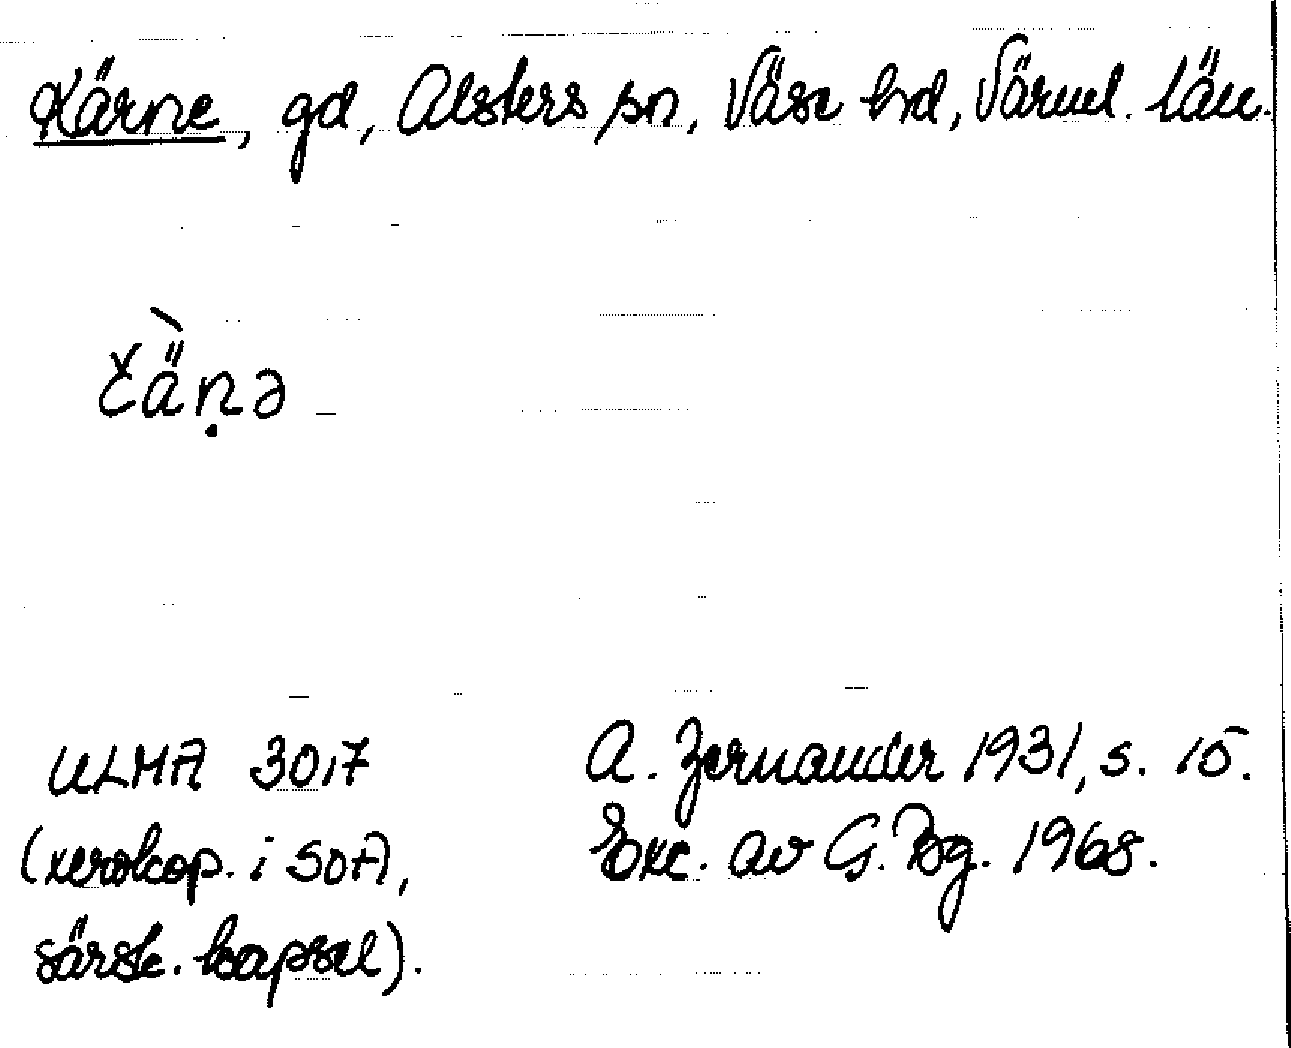 Kärne, gd, Alsters sn, Väse hd, Värml. län.
čä̀ṇə
ULMA 301,7 A. Zernander 1931, s. 15.
(xerokop. i SOA, Exc. av G. Bg. 1968.
särsk. kapsel).